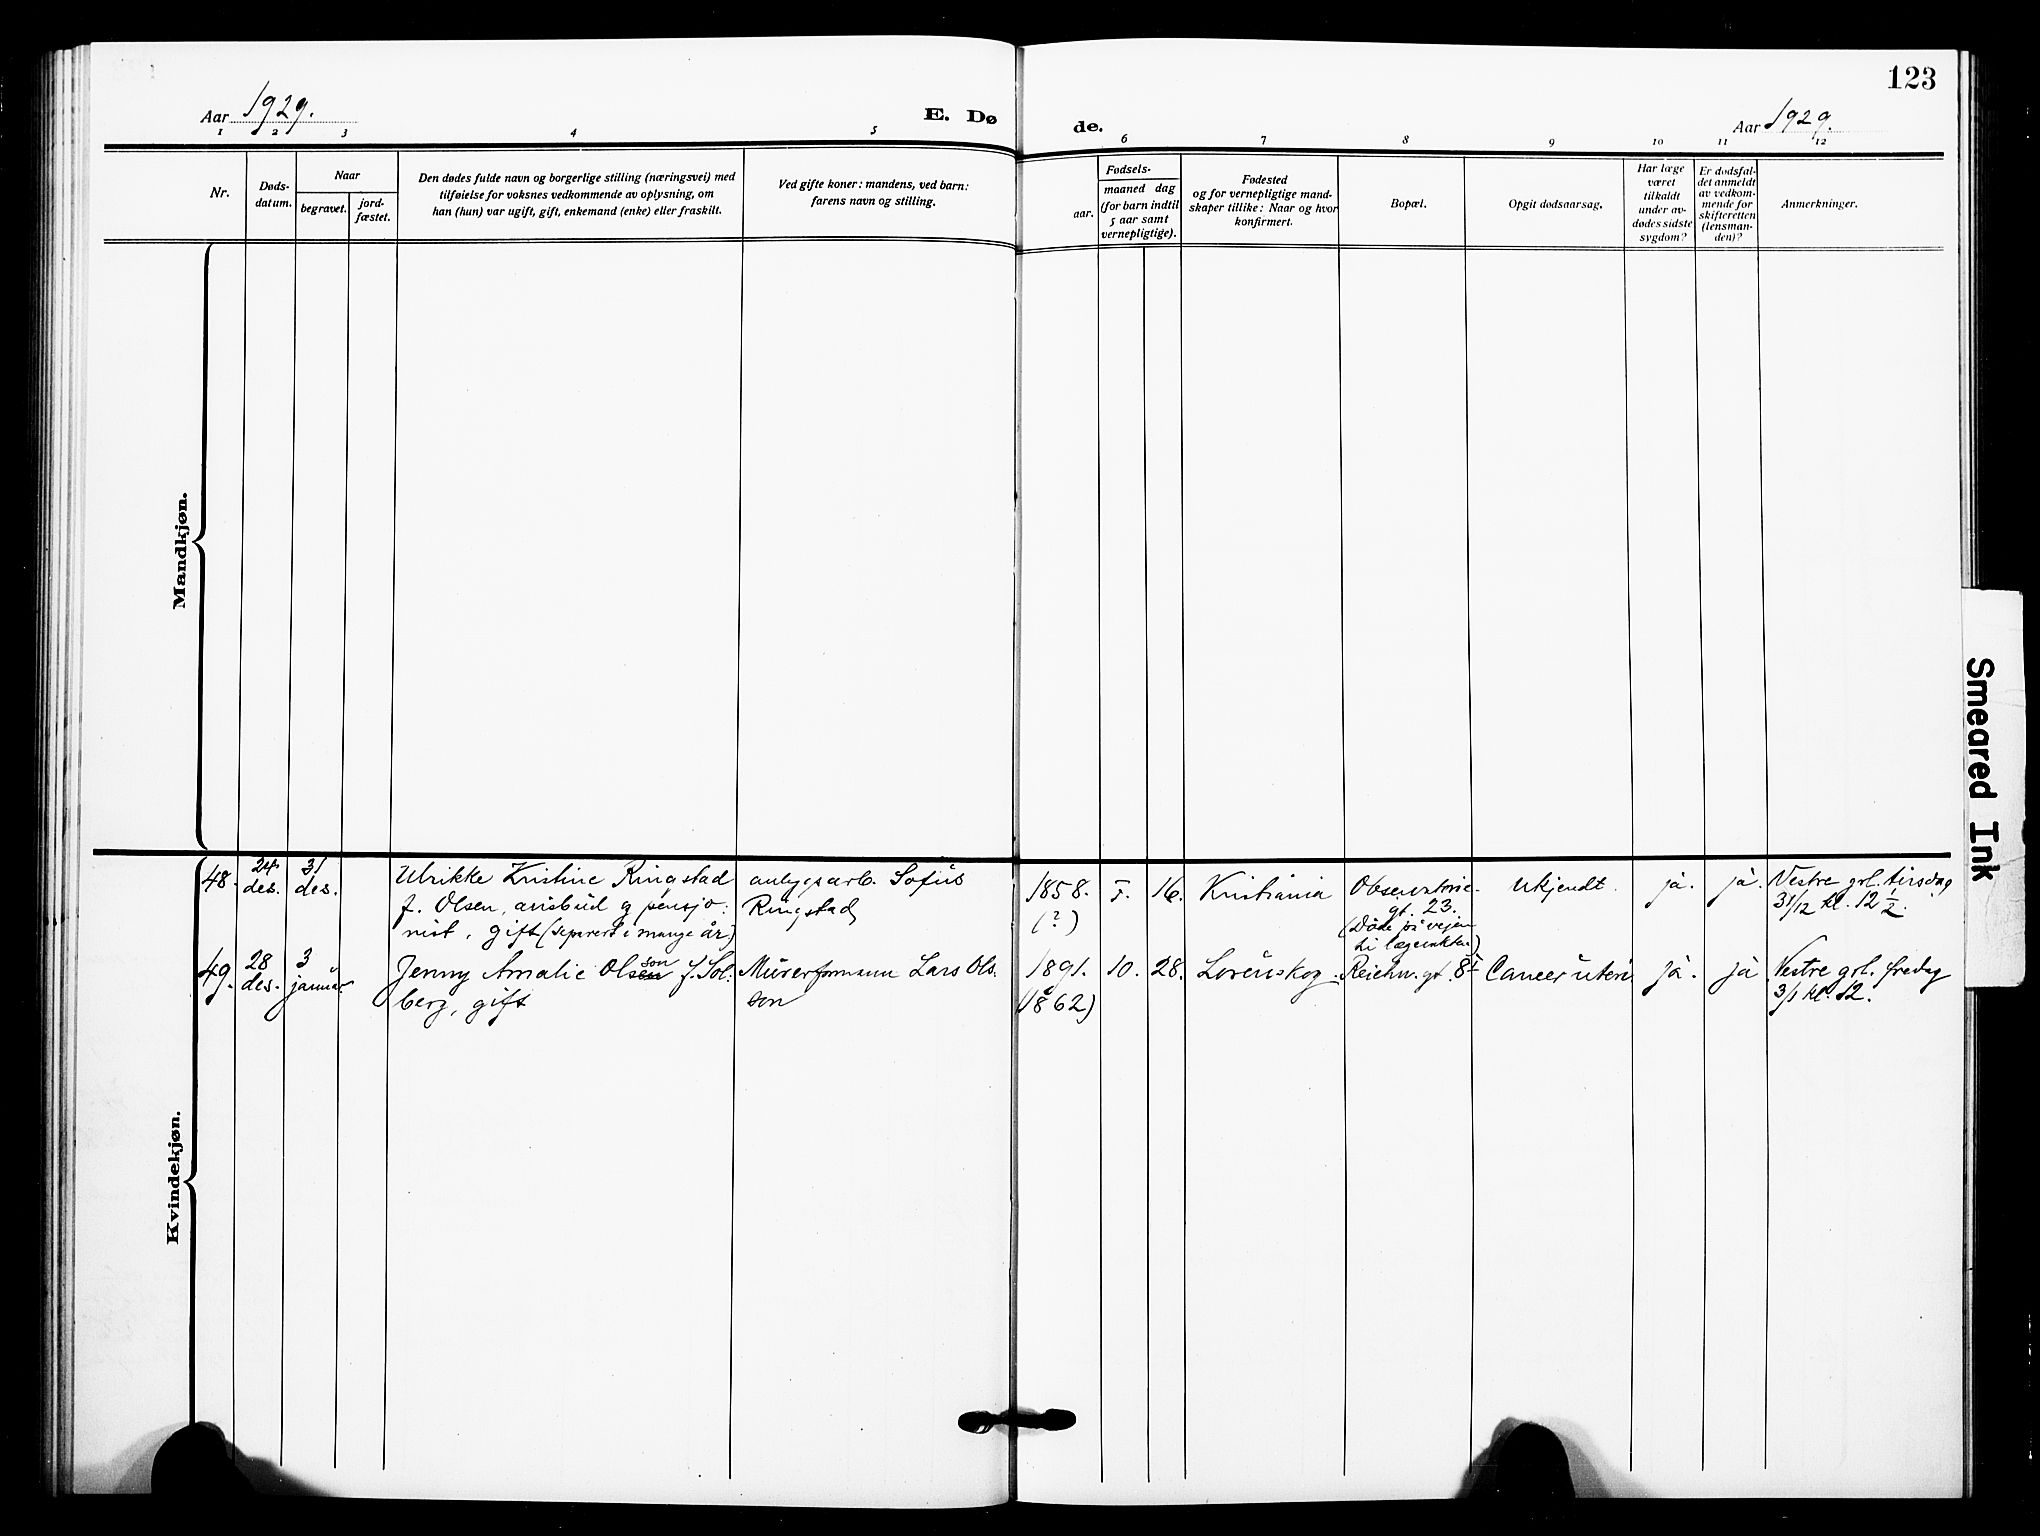 123
Aar 1929.
E. Dø
de.
Aar 1929.
1 2 3 4 5 6 7 8 9 10 11 12
Nr.
Døds-
datum.
Naar
begravet.
jord-
fæstet.
Den dødes fulde navn og borgerlige stilling (næringsvei) med
tilføielse for voksnes vedkommende av oplysning, om
han (hun) var ugift, gift, enkemand (enke) eller fraskilt.
Ved gifte koner: mandens, ved barn:
farens navn og stilling.
Fødsels-
aar.
maaned dag
(for barn indtil
5 aar samt
vernepligtige).
Fødested
og for vernepligtige mand-
skaper tillike: Naar og hvor
konfirmert.
Bopæl.
Opgit dødsaarsag.
Har læge
været
tilkaldt
under av-
dødes sidste
sygdom?
Er dødsfal-
det anmeldt
av vedkom-
mende for
skifteretten
(lensman-
den)?
Anmerkninger.
Mandkjøn.
Kvindekjøn.
48.
24
des.
31
des.
Ulrikke Kristine Ringstad
f. Olsen, avisbud og pensjo-
nist, gift (separert i mange år)
anlegsarb. Sofus
Ringstad
1858.
(?)
5.
16.
Kristiania
Observatorie-
gt. 23.
(Døde på vejen
til lægevakten)
Ukjendt.
ja.
ja.
Vestre grl. tirsdag
31/12 kl. 12 1/2.
49.
28
des.
3
januar
Jenny Amalie Olsen son f. Sol-
berg, gift
Murerformann Lars Ols-
son
1891.
(1862)
10.
28.
Lørenskog.
Reichw. gt. 8 I
Cancer uteri.
ja.
ja
Vestre grl. fredag
3/1 kl. 12.
Smeared Ink